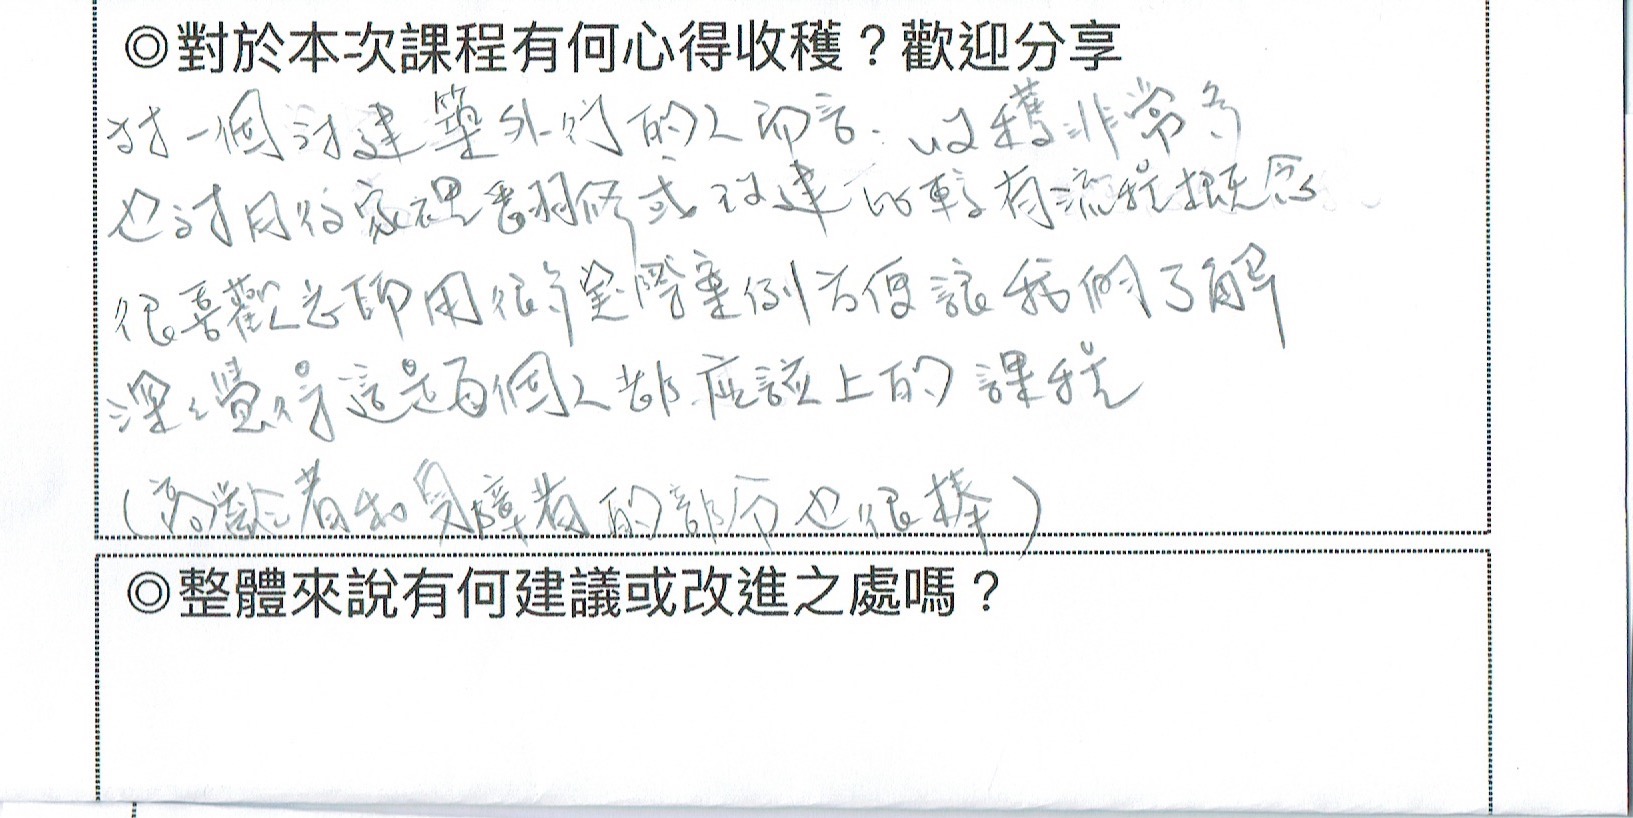 ◎對於本次課程有何心得收穫？歡迎分享
對一個對建築外行的人而言．收穫非常多
也對日後家裡要翻修或改建的較有流程概念
很喜歡老師用很多實際案例方便讓我們了解
深深覺得這是每個人都應該上的課程
（高齡者和身障者的部分也很棒）
◎整體來說有何建議或改進之處嗎？